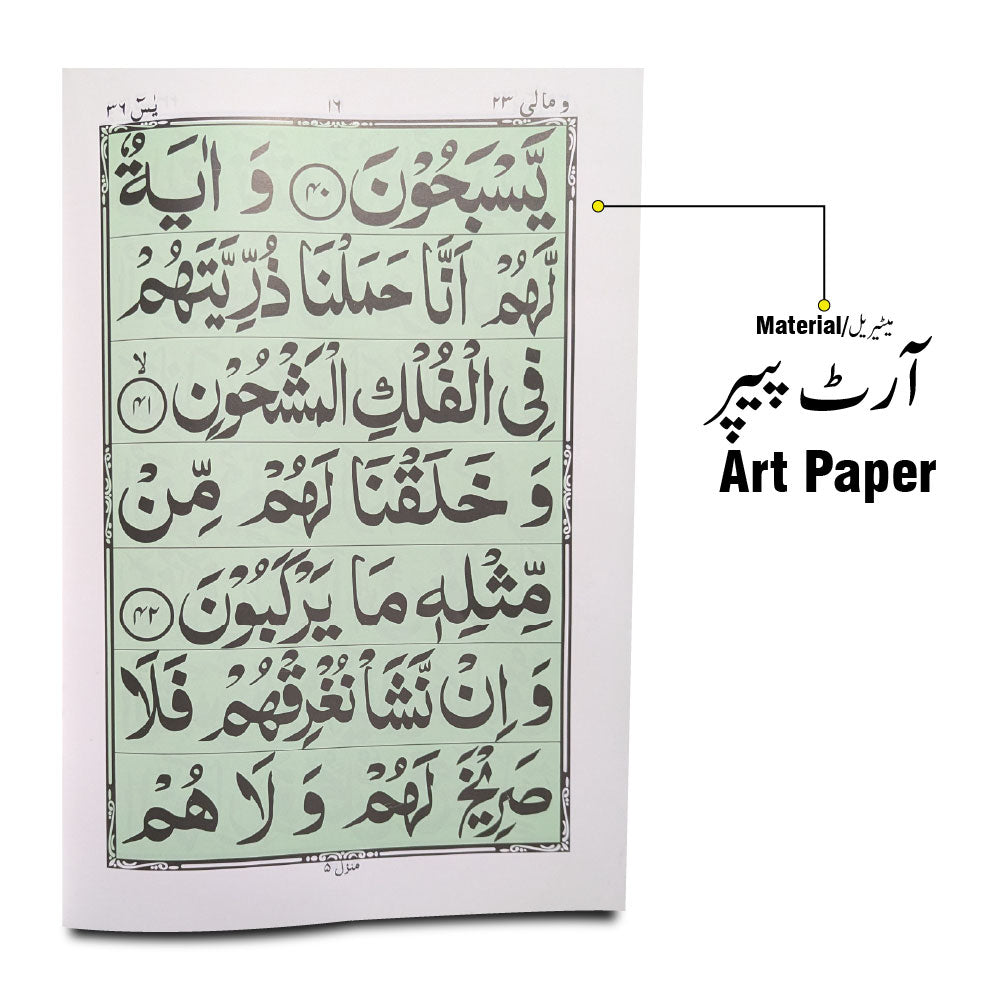 و مالی ۲۳ ۱۶ یٰسٓ ۳۶
یَّسْبَحُوْنَ ۴۰ وَ اٰیَةٌ
لَّهُمْ اَنَّا حَمَلْنَا ذُرِّیَّتَهُمْ
فِی الْفُلْكِ الْمَشْحُوْنِ ۴۱ لا
وَ خَلَقْنَا لَهُمْ مِّنْ
مِّثْلِهٖ مَا یَرْكَبُوْنَ ۴۲
وَ اِنْ نَّشَاْ نُغْرِقْهُمْ فَلَا
صَرِیْخَ لَهُمْ وَ لَا هُمْ
منزل ۵
Material/میٹیریل
آرٹ پیپر
Art Paper